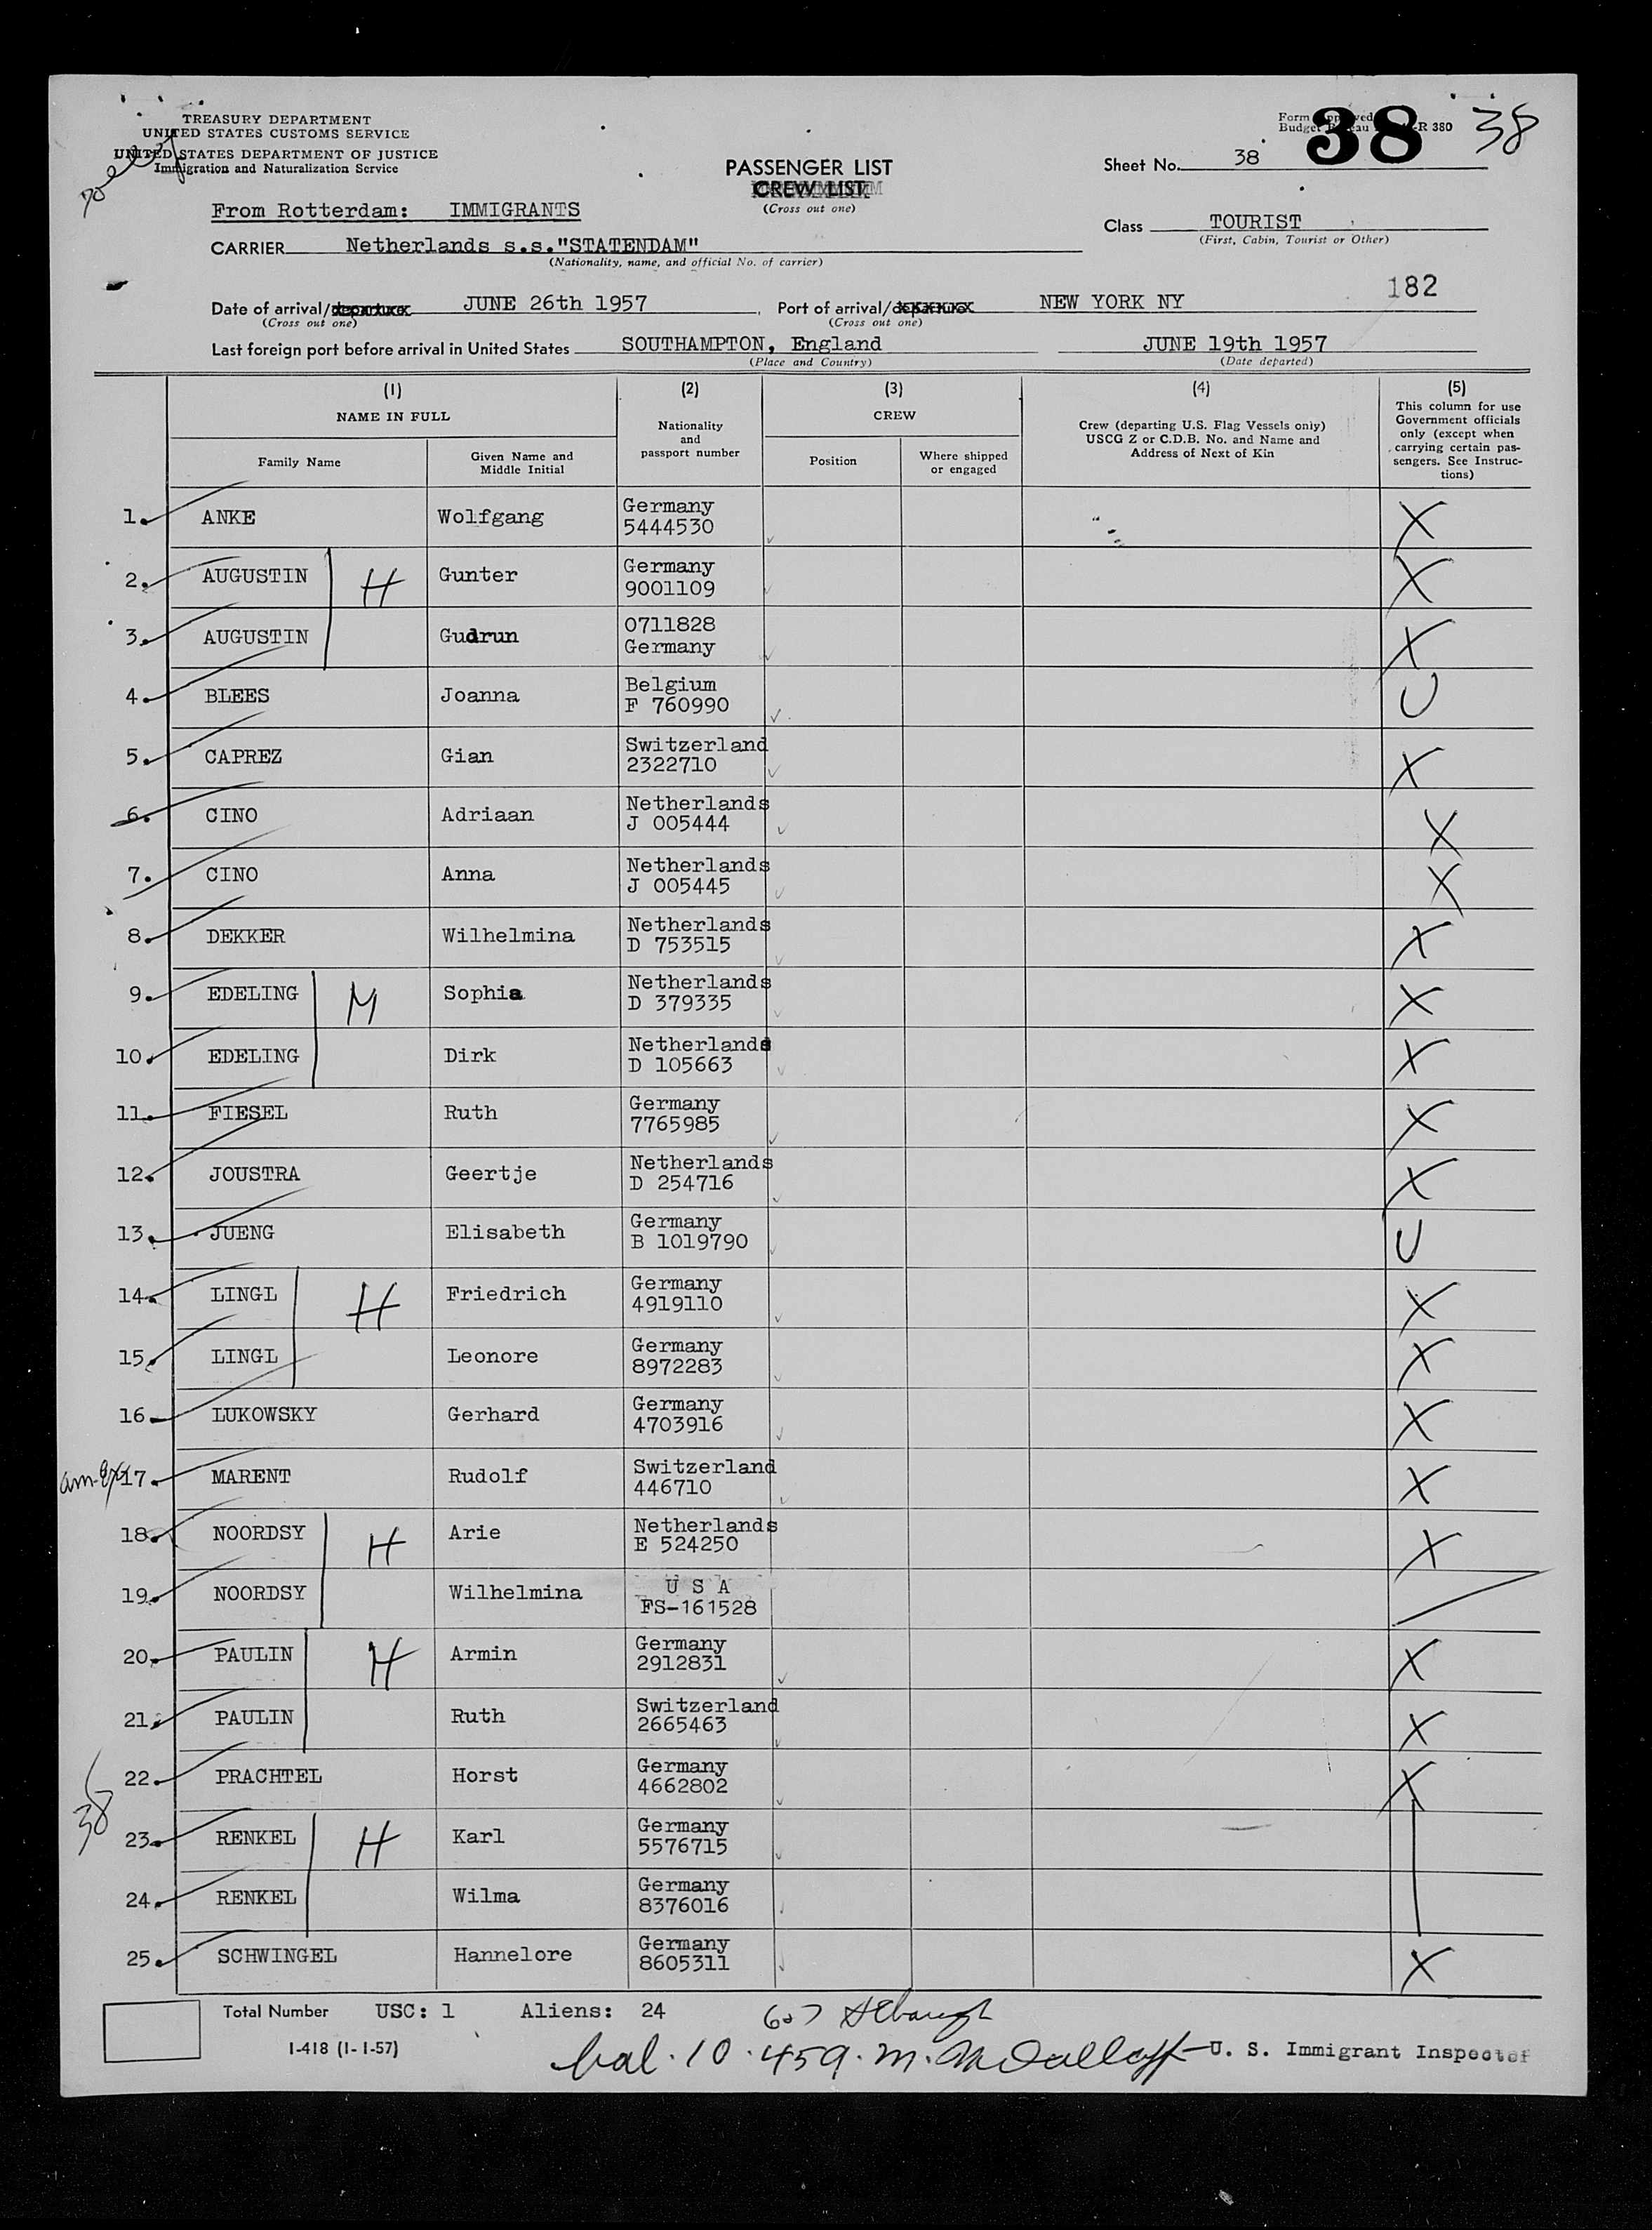 TREASURY DEPARTMENT
UNITED STATES CUSTOMS SERVICE
UNITED STATES DEPARTMENT OF JUSTICE
Immigration and Naturalization Service
PASSENGER LIST
CREW LIST
(Cross out one)
Form Approved
Budget Bureau R 380
38
38
Sheet No. 38
From Rotterdam: IMMIGRANTS
Class TOURIST
(First, Cabin, Tourist or Other)
CARRIER Netherlands s.s."STATENDAM"
(Nationality, name, and official No. of carrier)
182
Date of arrival/departure JUNE 26th 1957, Port of arrival/departure NEW YORK NY
(Cross out one) (Cross out one)
Last foreign port before arrival in United States SOUTHAMPTON, England JUNE 19th 1957
(Place and Country) (Date departed)
(1) (2) (3) (4) (5)
NAME IN FULL
Family Name
Given Name and Middle Initial
Nationality and passport number
CREW
Position
Where shipped or engaged
Crew (departing U.S. Flag Vessels only) USCG Z or C.D.B. No. and Name and Address of Next of Kin
This column for use Government officials only (except when carrying certain passengers. See Instructions)
1. ANKE Wolfgang Germany 5444530 X
2. AUGUSTIN H Gunter Germany 9001109 X
3. AUGUSTIN Gudrun 0711828 Germany X
4. BLEES Joanna Belgium F 760990 U
5. CAPREZ Gian Switzerland 2322710 X
6. CINO Adriaan Netherlands J 005444 X
7. CINO Anna Netherlands J 005445 X
8. DEKKER Wilhelmina Netherlands D 753515 X
9. EDELING M Sophia Netherlands D 379335 X
10. EDELING Dirk Netherlands D 105663 X
11. FIESEL Ruth Germany 7765985 X
12. JOUSTRA Geertje Netherlands D 254716 X
13. JUENG Elisabeth Germany B 1019790 U
14. LINGL H Friedrich Germany 4919110 X
15. LINGL Leonore Germany 8972283 X
16. LUKOWSKY Gerhard Germany 4703916 X
17. MARENT Rudolf Switzerland 446710 X
18. NOORDSY H Arie Netherlands E 524250 X
19. NOORDSY Wilhelmina U S A FS-161528
20. PAULIN H Armin Germany 2912831 X
21. PAULIN Ruth Switzerland 2665463 X
22. PRACHTEL Horst Germany 4662802 X
38
23. RENKEL H Karl Germany 5576715
24. RENKEL Wilma Germany 8376016
25. SCHWINGEL Hannelore Germany 8605311 X
Total Number USC: 1 Aliens: 24
I-418 (1-1-57)
U. S. Immigrant Inspector